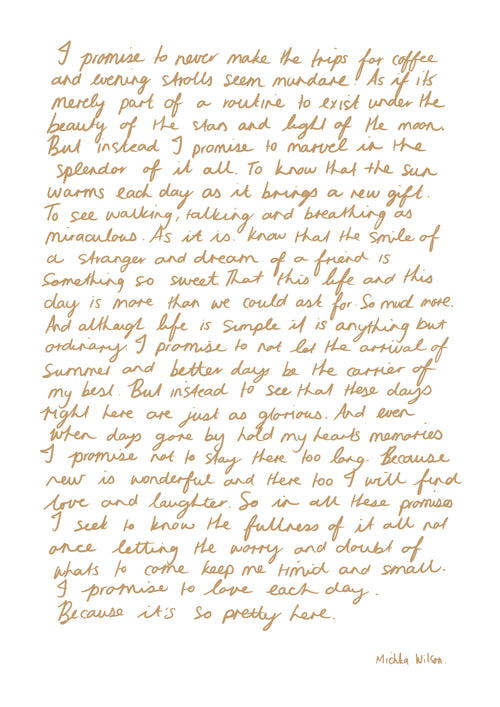 I promise to never make the trips for coffee
and evening strolls seem mundane. As if its
merely part of a routine to exist under the
beauty of the stars and light of the moon.
But instead I promise to marvel in the
splendor of it all. To know that the sun
warms each day as it brings a new gift.
To see walking, talking and breathing as
miraculous. As it is. Know that the smile of
a stranger and dream of a friend is
something so sweet. That this life and this
day is more than we could ask for. So much more.
And although life is simple it is anything but
ordinary. I promise to not let the arrival of
summer and better days be the carrier of
my best. But instead to see that these days
right here are just as glorious. And even
when days gone by hold my hearts memories
I promise not to stay there too long. Because
new is wonderful and there too I will find
love and laughter. So in all these promises
I seek to know the fullness of it all not
once letting the worry and doubt of
whats to come keep me timid and small.
I promise to love each day.
Because it's so pretty here.
Michka Wilson.